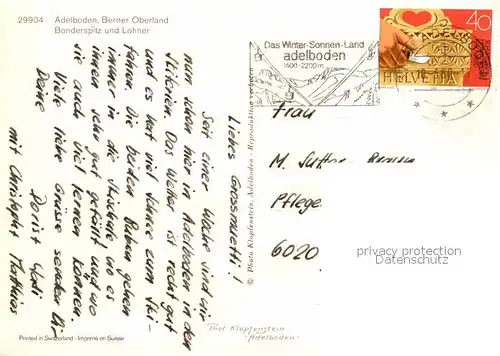 29904 Adelboden, Berner Oberland
Bonderspitz und Lohner
Das Winter-Sonnen-Land
adelboden
1400-2200 m
40
HELVETIA
ADELBODEN
Liebes Grossmuetti!
Seit einer Woche sind wir
nun schon hier in Adelboden in den
Skiferien. Das Wetter ist recht gut
und es hat viel Schnee zum Ski-
fahren. Die beiden Buben gehen
immer in die Skischule, wo es
ihnen sehr gut gefällt und wo
sie auch viel lernen können.
Viele liebe Grüsse senden Dir
Deine Dorist Wadi
mit Christophe Matthias
© Photo Klopfenstein, Adelboden - Reproduktion verboten
Frau
M.
Pflege
6020
privacy protection
www.oldthing.com
Phot Klopfenstein
"Adelboden"
Printed in Switzerland - Imprimé en Suisse